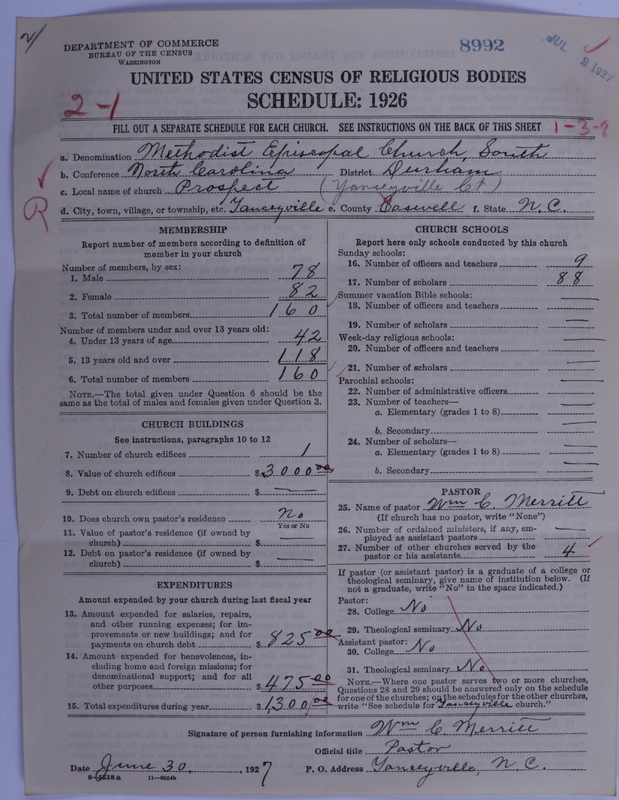 DEPARTMENT OF COMMERCE
BUREAU OF THE CENSUS
WASHINGTON
8992
JUL 2 1927
UNITED STATES CENSUS OF RELIGIOUS BODIES
SCHEDULE: 1926
2-1
FILL OUT A SEPARATE SCHEDULE FOR EACH CHURCH. SEE INSTRUCTIONS ON THE BACK OF THIS SHEET
1-3-9
a. Denomination Methodist Episcopal Church, South
b. Conference North Carolina District Durham
c. Local name of church Prospect (Yanceyville Ct)
R
d. City, town, village, or township, etc. Yanceyville e. County Caswell f. State N.C.
MEMBERSHIP
Report number of members according to definition of member in your church
Number of members, by sex:
1. Male 78
2. Female 82
3. Total number of members 160
Number of members under and over 13 years old:
4. Under 13 years of age 42
5. 13 years old and over 118
6. Total number of members 160
NOTE.—The total given under Question 6 should be the same as the total of males and females given under Question 3.
CHURCH BUILDINGS
See instructions, paragraphs 10 to 12
7. Number of church edifices 1
8. Value of church edifices $3000.00
9. Debt on church edifices $
10. Does church own pastor's residence No
Yes or No
11. Value of pastor's residence (if owned by church) $
12. Debt on pastor's residence (if owned by church) $
EXPENDITURES
Amount expended by your church during last fiscal year
13. Amount expended for salaries, repairs, and other running expenses; for improvements or new buildings; and for payments on church debt $825.00
14. Amount expended for benevolences, including home and foreign missions; for denominational support; and for all other purposes $475.00
15. Total expenditures during year $1,300.00
CHURCH SCHOOLS
Report here only schools conducted by this church
Sunday schools:
16. Number of officers and teachers 9
17. Number of scholars 88
Summer vacation Bible schools:
18. Number of officers and teachers
19. Number of scholars
Week-day religious schools:
20. Number of officers and teachers
21. Number of scholars
Parochial schools:
22. Number of administrative officers
23. Number of teachers—
a. Elementary (grades 1 to 8)
b. Secondary
24. Number of scholars—
a. Elementary (grades 1 to 8)
b. Secondary
PASTOR
25. Name of pastor Wm C. Merritt
(If church has no pastor, write "None")
26. Number of ordained ministers, if any, employed as assistant pastors
27. Number of other churches served by the pastor or his assistants 4
If pastor (or assistant pastor) is a graduate of a college or theological seminary, give name of institution below. (If not a graduate, write "No" in the space indicated.)
Pastor:
28. College No
29. Theological seminary No
Assistant pastor:
30. College No
31. Theological seminary No
NOTE.—Where one pastor serves two or more churches, Questions 28 and 29 should be answered only on the schedule for one of the churches; on the schedules for the other churches, write "See schedule for Yanceyville church."
Signature of person furnishing information Wm C Merritt
Official title Pastor
Date June 30, 1927 P. O. Address Yanceyville, N.C.